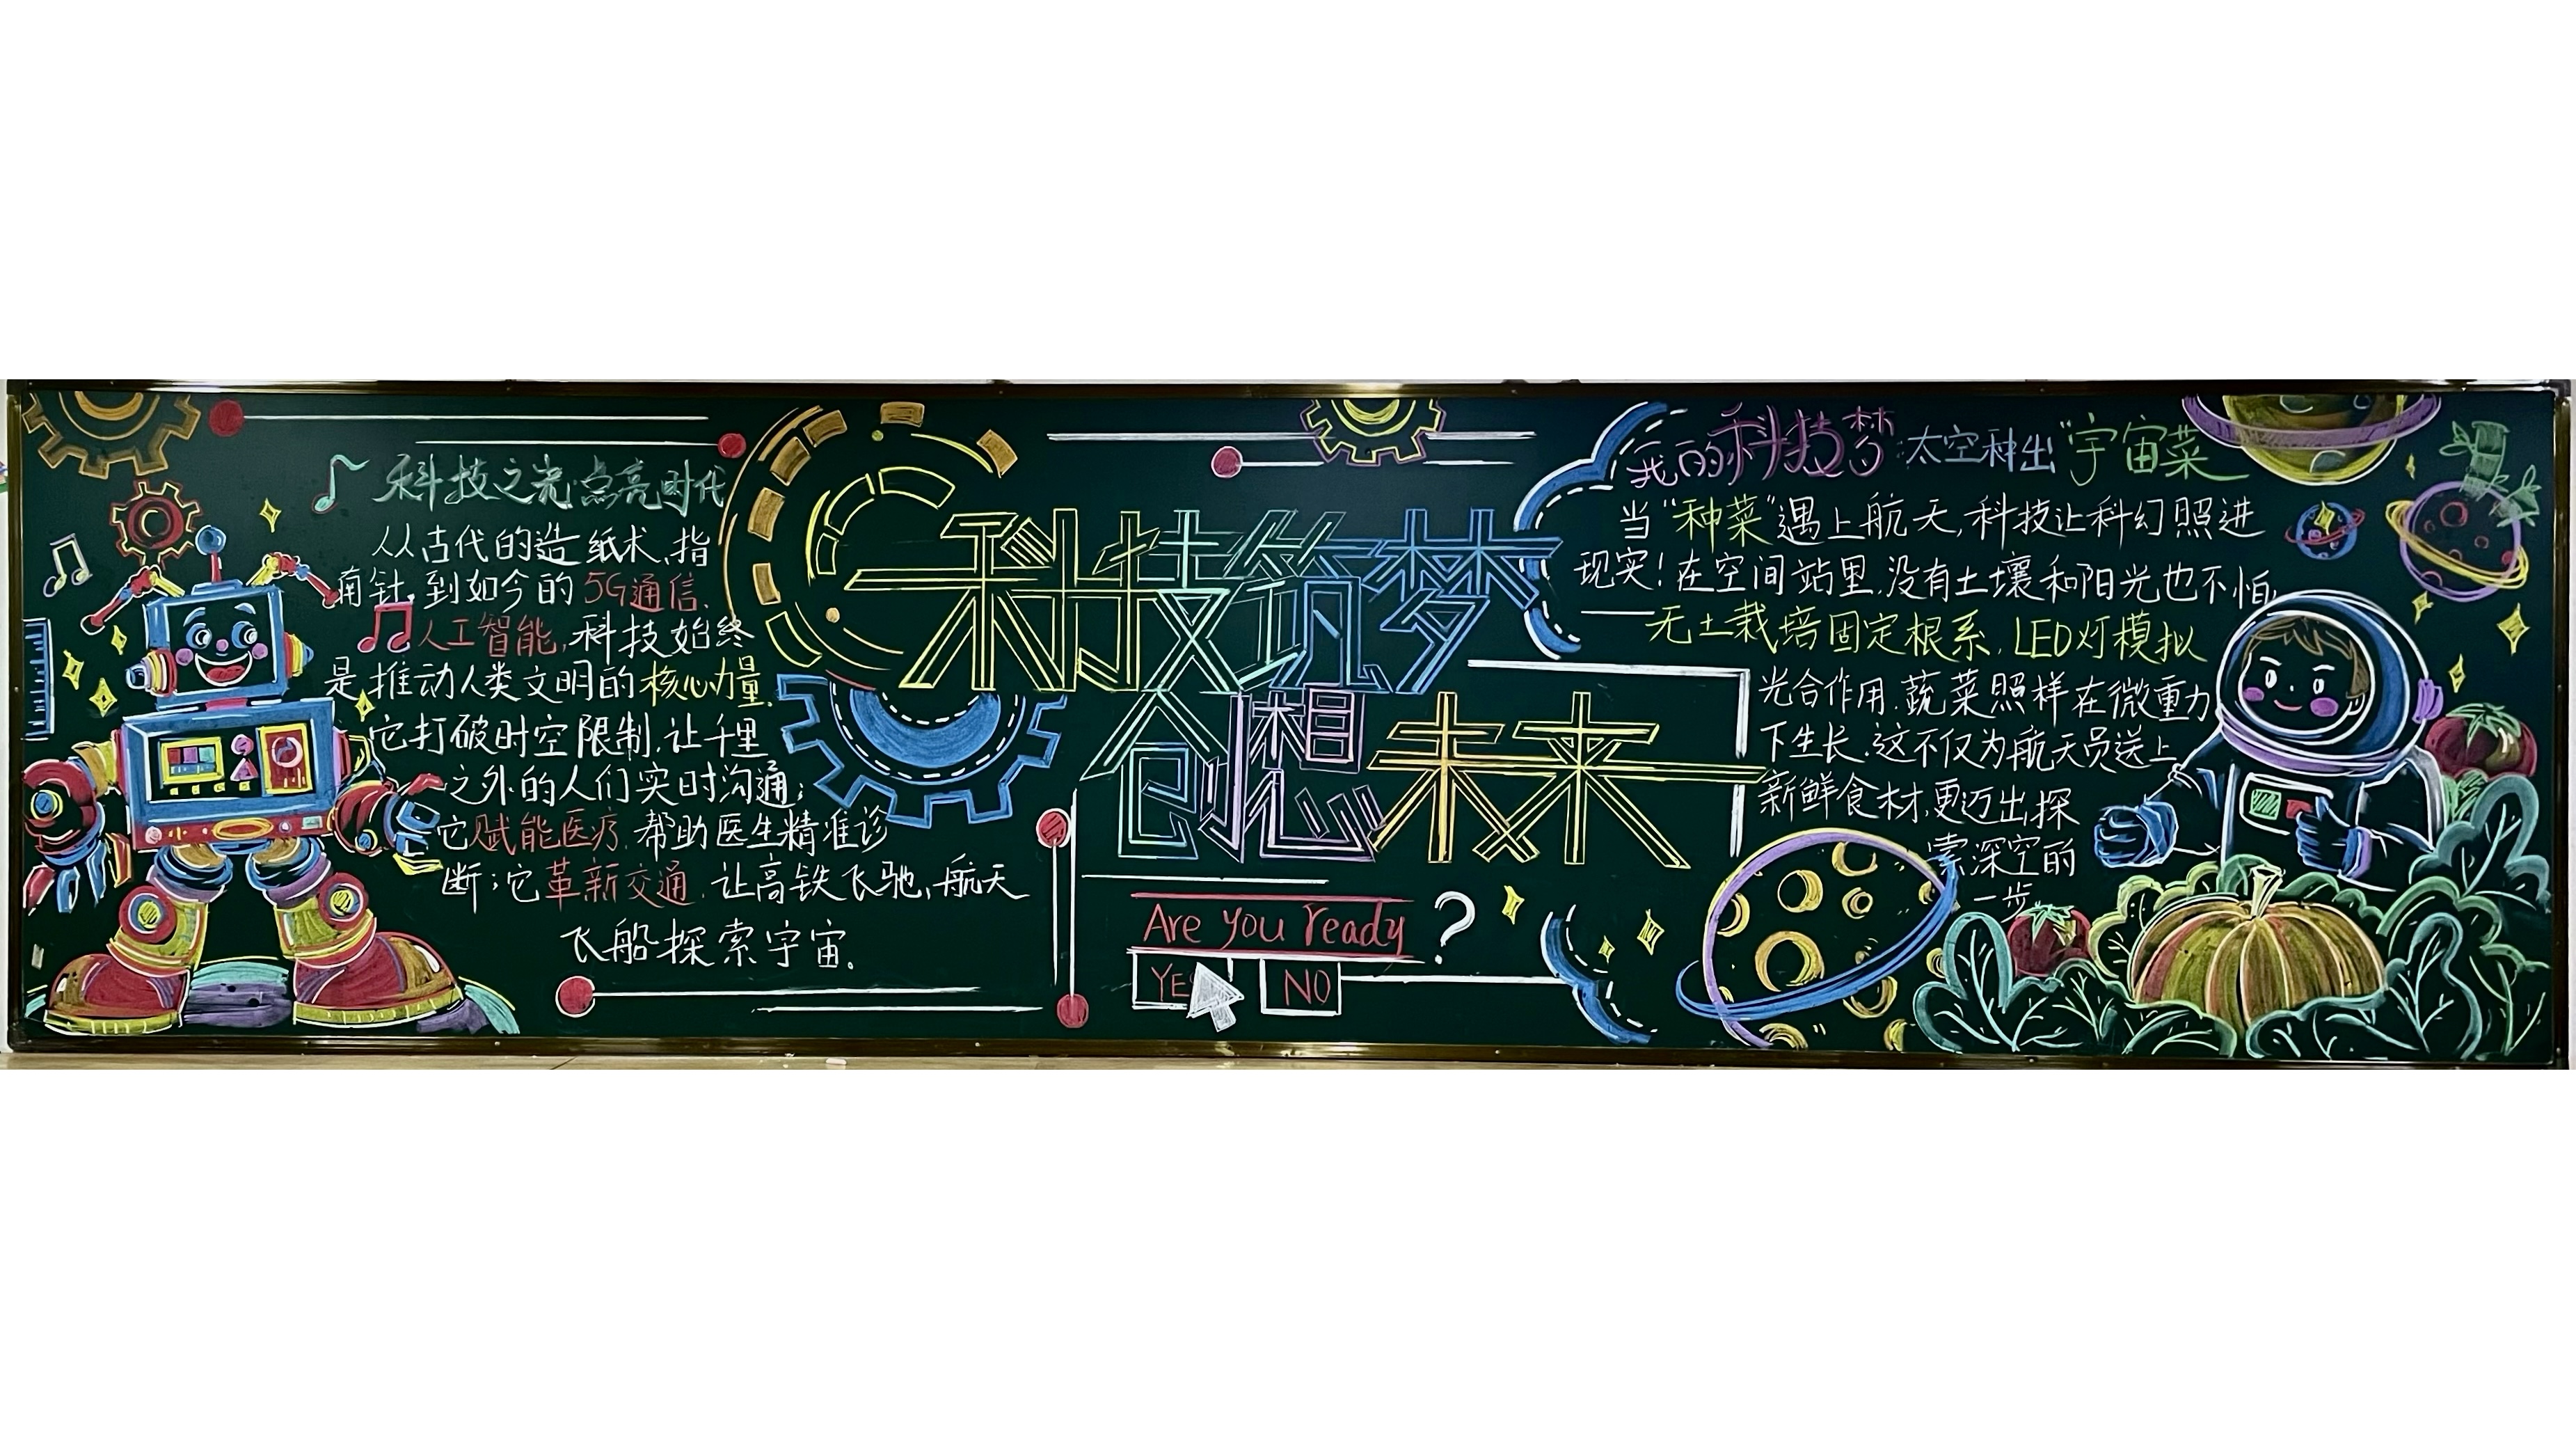 科技之光点亮时代
从古代的造纸术、指
南针,到如今的5G通信、
人工智能,科技始终
是推动人类文明的核心力量.
它打破时空限制,让千里
之外的人们实时沟通;
它赋能医疗,帮助医生精准诊
断;它革新交通,让高铁飞驰,航天
飞船探索宇宙.
科技筑梦
创想未来
Are you ready?
YE
NO
我的科技梦:太空种出“宇宙菜
当“种菜”遇上航天,科技让科幻照进
现实!在空间站里,没有土壤和阳光也不怕,
——无土栽培固定根系,LED灯模拟
光合作用,蔬菜照样在微重力
下生长.这不仅为航天员送上
新鲜食材,更迈出探
索深空的
一步.